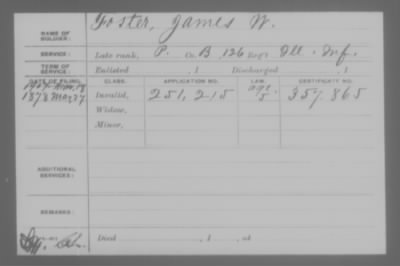 NAME OF SOLDIER: Foster, James W.
SERVICE: Late rank, P. Co. B, 126 Reg't Ill. Inf.
TERM OF SERVICE: Enlisted , 1 Discharged , 1
DATE OF FILING. CLASS. APPLICATION NO. LAW. CERTIFICATE NO.
1878 Mar, 27 Invalid, 251,215 357.865
Widow,
Minor,
ADDITIONAL SERVICES:
REMARKS:
Died , 1 , at